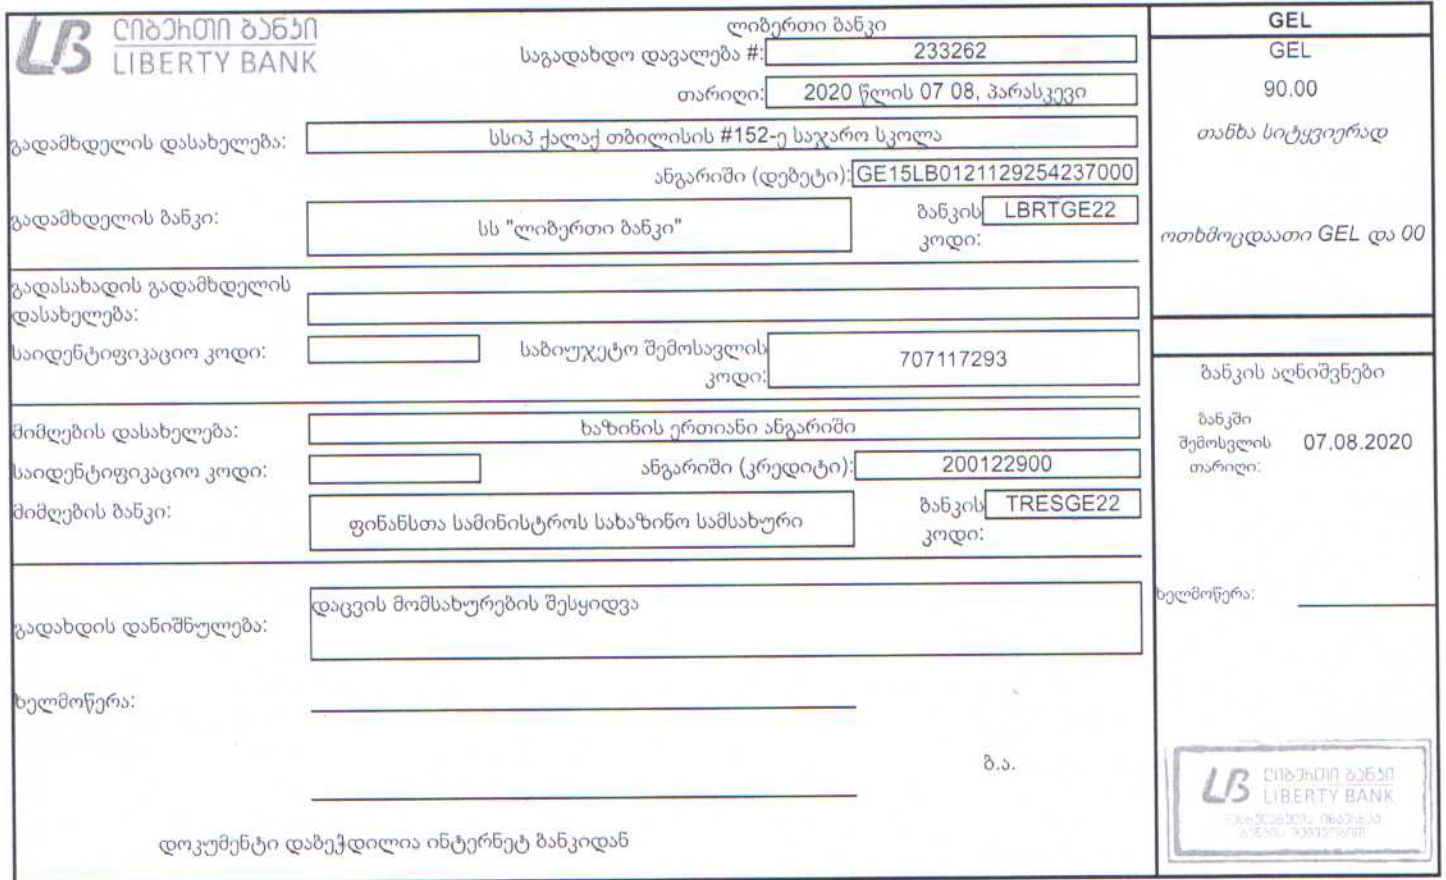 ლიბერთი ბანკი
LIBERTY BANK
ლიბერთი ბანკი
საგადახდო დავალება #: 233262
თარიღი: 2020 წლის 07 08, პარასკევი
გადამხდელის დასახელება: სსიპ ქალაქ თბილისის #152-ე საჯარო სკოლა
ანგარიში (დებეტი): GE15LB0121129254237000
გადამხდელის ბანკი: სს "ლიბერთი ბანკი" ბანკის კოდი: LBRTGE22
გადასახადის გადამხდელის
დასახელება:
საიდენტიფიკაციო კოდი: საბიუჯეტო შემოსავლის
კოდი: 707117293
მიმღების დასახელება: ხაზინის ერთიანი ანგარიში
საიდენტიფიკაციო კოდი: ანგარიში (კრედიტი): 200122900
მიმღების ბანკი: ფინანსთა სამინისტროს სახაზინო სამსახური ბანკის კოდი: TRESGE22
გადახდის დანიშნულება: დაცვის მომსახურების შესყიდვა
ხელმოწერა:
ბ.ა.
დოკუმენტი დაბეჭდილია ინტერნეტ ბანკიდან
GEL
GEL
90.00
თანხა სიტყვიერად
ოთხმოცდაათი GEL და 00
ბანკის აღნიშვნები
ბანკში
შემოსვლის 07.08.2020
თარიღი:
ხელმოწერა:
ლიბერთი ბანკი
LIBERTY BANK